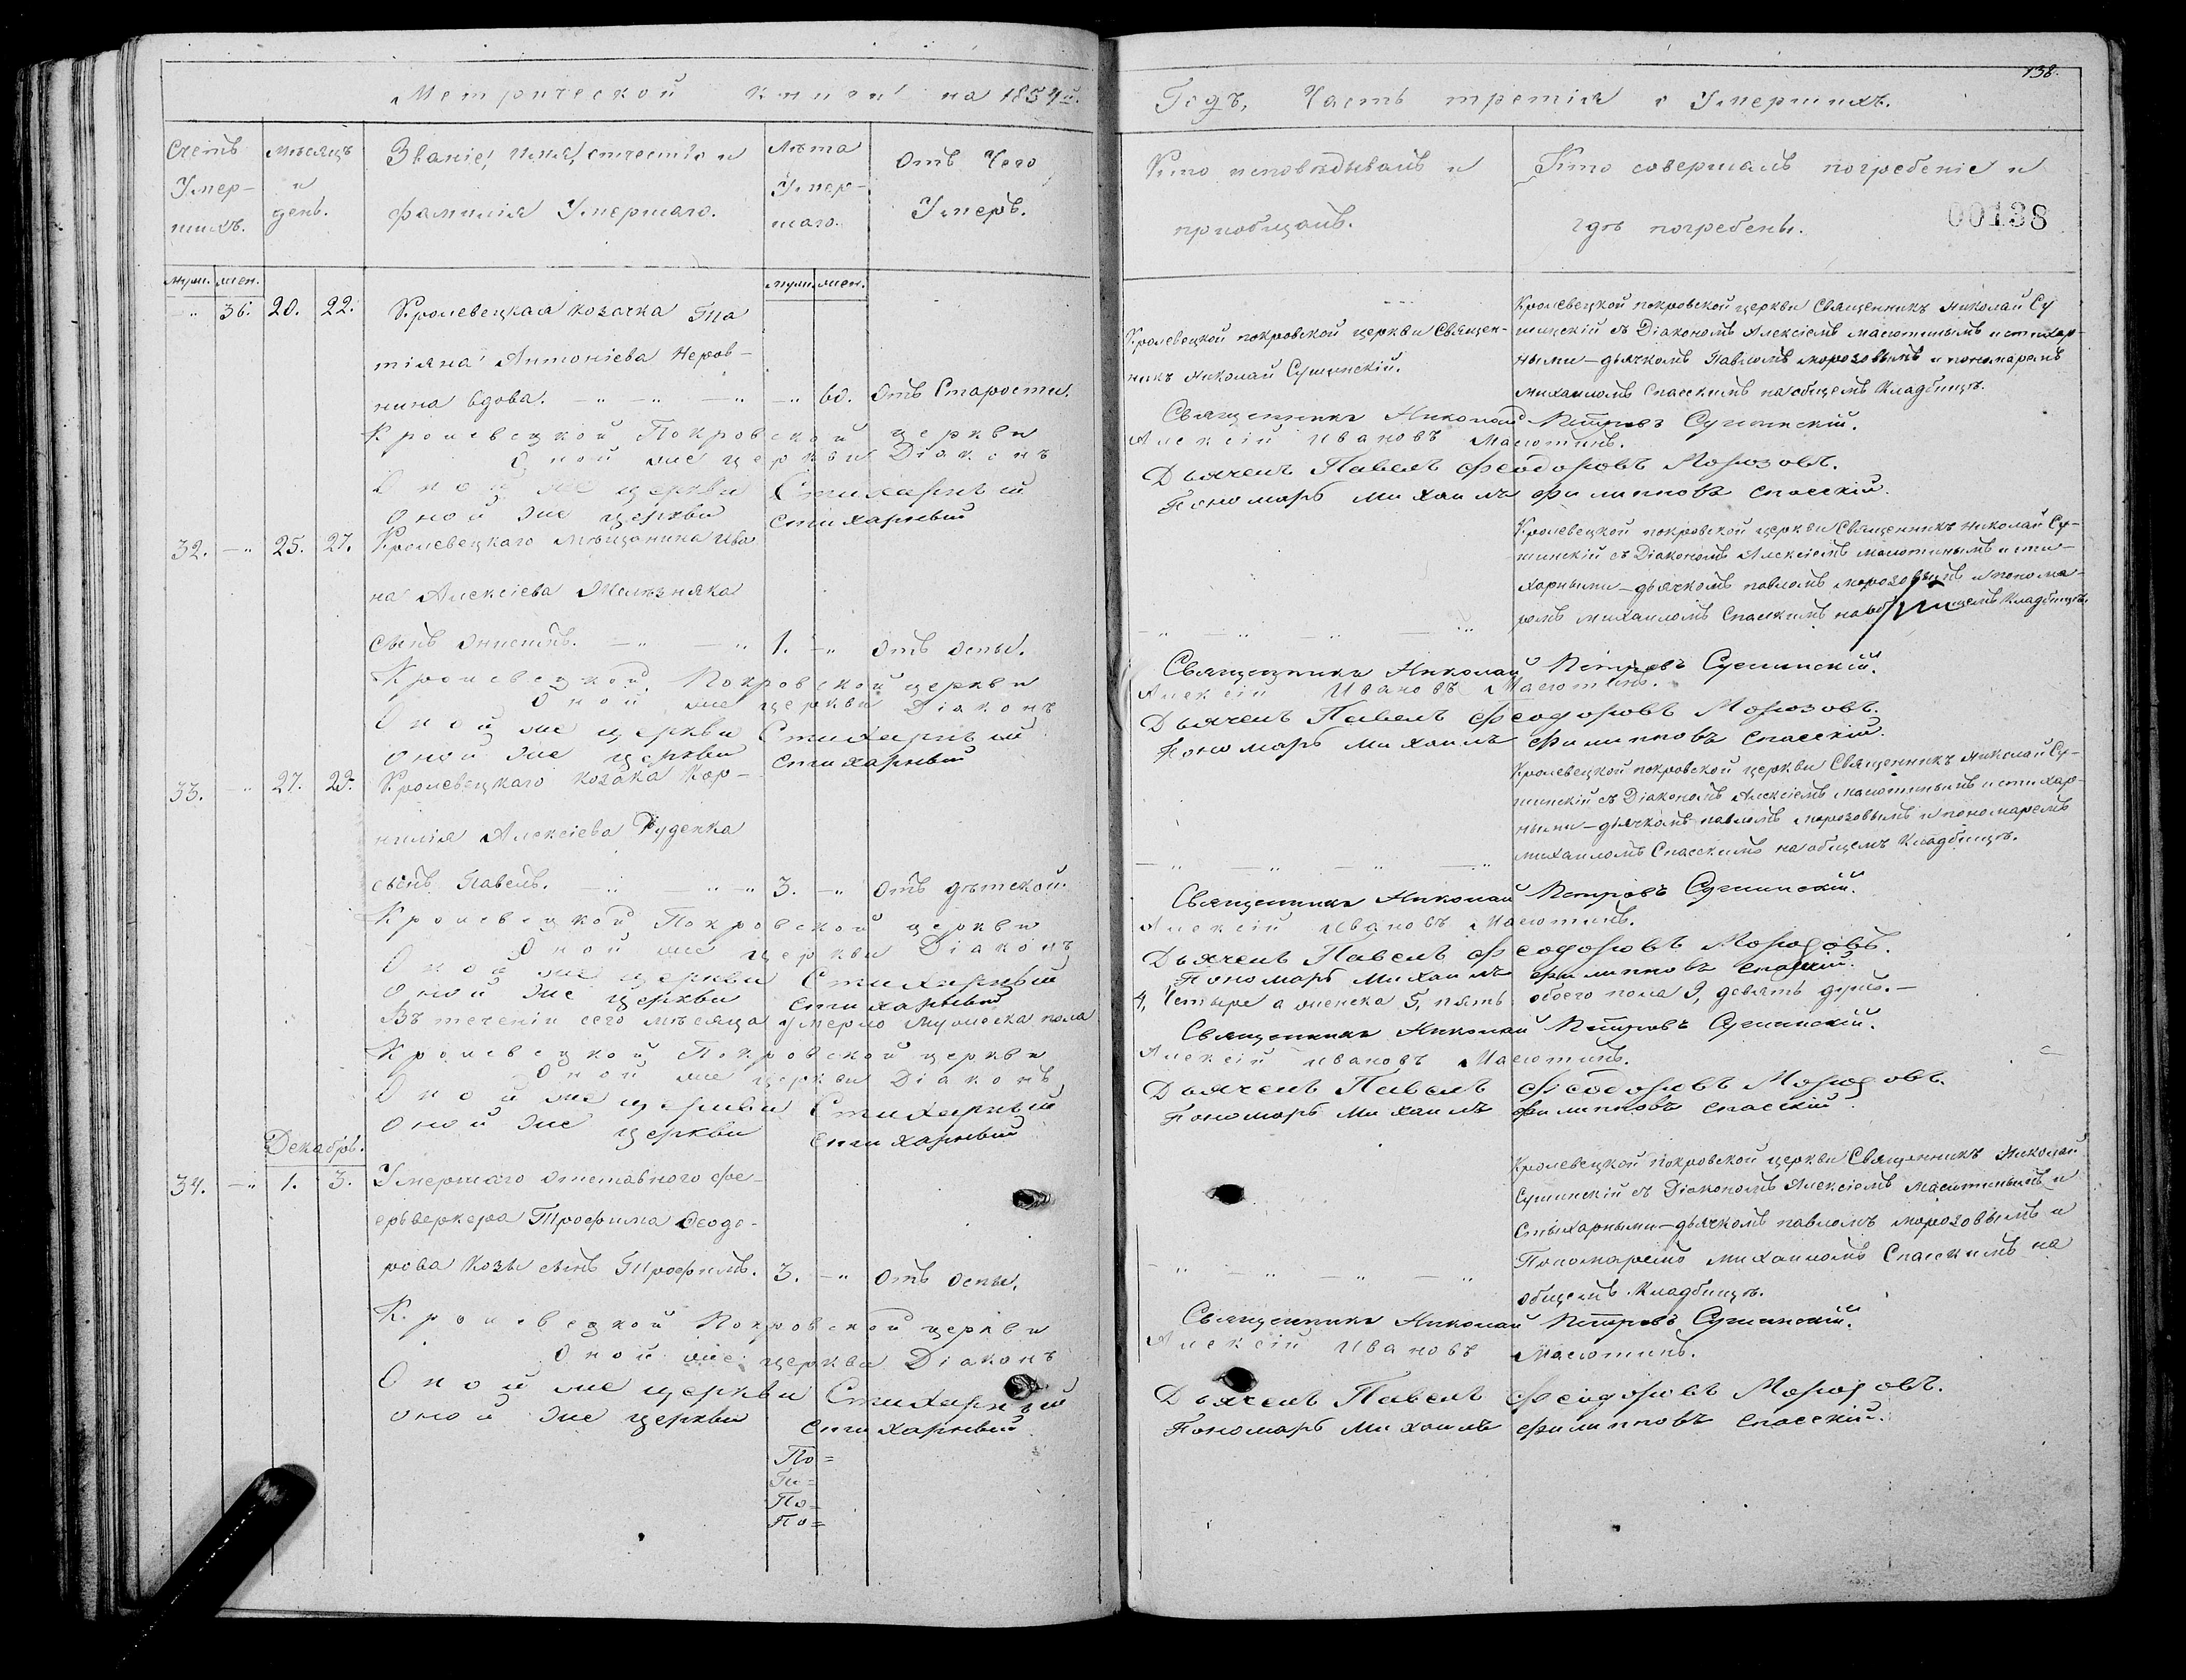 Метрической книги на 1854й.
Счетъ
Умер-
шихъ.
Мѣсяцъ
и
день.
Званіе, имя, отчество и
фамилія Умершаго.
Лѣта
Умер-
шаго.
Отъ Чего
Умеръ.
муж. жен.
муж. жен.
" 36. 20. 22. Кролевецкая козачка Та
тіяна Антоніева Неров-
нина вдова. 60. Отъ Старости.
Кролевецкой Покровской церкви
Оной же церкви Діаконъ
Оной же церкви Стихарный
Оной же церкви стихарный
32. 25. 27. Кролевецкаго мѣщанина Ива
на Алексіева Желѣзняка
сынъ Онисимъ. 1. отъ оспы.
Кролевецкой Покровской церкви
Оной же церкви Діаконъ
Оной же церкви Стихарный
Оной же церкви стихарный
33. 27. 29. Кролевецкаго козака Кор-
нилія Алексіева Руденка
сынъ Павелъ. 3. отъ дѣтской.
Кролевецкой Покровской церкви
Оной же церкви Діаконъ
Оной же церкви Стихарный
Оной же церкви стихарный
Въ теченіи сего мѣсяца умерло мужеска пола
Кролевецкой Покровской церкви
Оной же церкви Діаконъ
Оной же церкви Стихарный
Оной же церкви стихарный
Декабрь.
34. 1. 3. Умершаго отставного фе-
ерверкера Трофима Ѳеодо-
рова Козы сынъ Трофимъ. 3. отъ оспы.
Кролевецкой Покровской церкви
Оной же церкви Діаконъ
Оной же церкви Стихарный
Оной же церкви стихарный
По=
По=
По=
По=
138.
Годъ, Часть третія о Умершихъ.
Кто исповѣдывалъ и
пріобщалъ.
Кто совершалъ погребеніе и
гдѣ погребены.
00138
Кролевецкой покровской церкви Священ-
никъ Николай Сушинскій.
Кролевецкой покровской церкви Священникъ Николай Су
шинскій съ Діакономъ Алексіемъ Масютинымъ и стихар-
ными - дьячкомъ Павломъ Морозовымъ и пономаремъ
Михаиломъ Спасскимъ на общемъ Кладбищѣ.
Священникъ Николай Петровъ Сушинскій.
Алексій Ивановъ Масютинъ.
Дьячекъ Павелъ Феодоровъ Морозовъ.
Пономарь Михаилъ Филипповъ Спасскій.
Кролевецкой покровской церкви Священникъ Николай Су-
шинскій съ Діакономъ Алексіемъ Масютинымъ и сти-
харными - дьячкомъ павломъ морозовымъ и понома-
ромъ Михаиломъ Спасскимъ на общемъ Кладбищѣ.
Священникъ Николай Петровъ Сушинскій.
Алексій Ивановъ Масютинъ.
Дьячекъ Павелъ Феодоровъ Морозовъ.
Пономарь Михаилъ Филипповъ Спасскій.
Кролевецкой покровской церкви Священникъ Николай Су-
шинскій съ Діакономъ Алексіемъ Масютинымъ и стихар-
ными - дьячкомъ павломъ морозовымъ и пономаремъ
Михаиломъ Спасскимъ на общемъ Кладбищѣ.
Священникъ Николай Петровъ Сушинскій.
Алексій Ивановъ Масютинъ.
Дьячекъ Павелъ Феодоровъ Морозовъ.
Пономарь Михаилъ Филипповъ Спасскій.
4, Четыре а женска 5, пять обоего пола 9, девять душъ.-
Священникъ Николай Петровъ Сушинскій.
Алексій Ивановъ Масютинъ.
Дьячекъ Павелъ Феодоровъ Морозовъ.
Пономарь Михаилъ Филипповъ Спасскій.
Кролевецкой покровской церкви Священникъ Николай
Сушинскій съ Діакономъ Алексіемъ Масютинымъ и
Стихарными - дьячкомъ павломъ морозовымъ и
Пономаремъ Михаиломъ Спасскимъ на
общемъ Кладбищѣ.
Священникъ Николай Петровъ Сушинскій.
Алексій Ивановъ Масютинъ.
Дьячекъ Павелъ Феодоровъ Морозовъ.
Пономарь Михаилъ Филипповъ Спасскій.